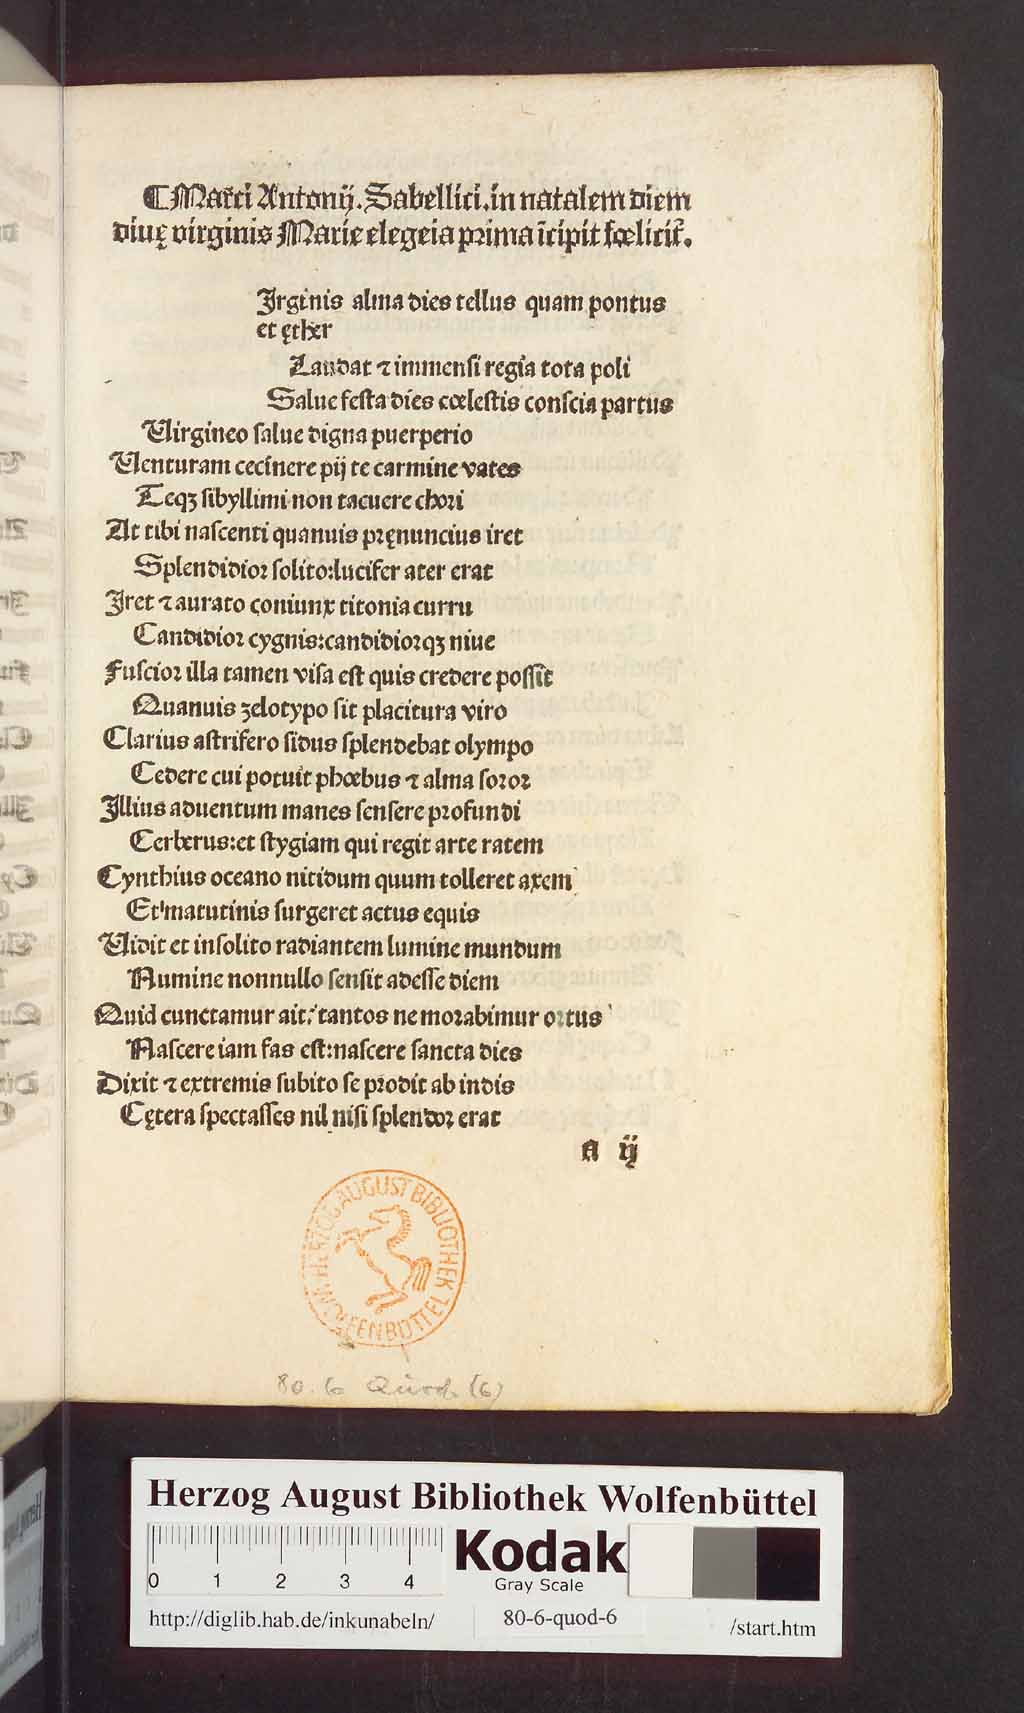 ⁋Marci Antonij. Sabellici. in natalem diem
diuę virginis Marię elegeia prima īcipit fœlicit̃.
Irginis alma dies tellus quam pontus
et ęther
Laudat ⁊ immensi regia tota poli
Salue festa dies cœlestis conscia partus
Uirgineo salue digna puerperio
Uenturam cecinere pij te carmine vates
Teqꝫ sibyllimi non tacuere chori
At tibi nascenti quanuis pręnuncius iret
Splendidior solito:lucifer ater erat
Iret ⁊ aurato coniunx titonia curru
Candidior cygnis:candidiorqꝫ niue
Fuscior illa tamen visa est quis credere possīt
Quanuis zelotypo sit placitura viro
Clarius astrifero sidus splendebat olympo
Cedere cui potuit phœbus ⁊ alma soror
Illius aduentum manes sensere profundi
Cerberus:et stygiam qui regit arte ratem
Cynthius oceano nitidum quum tolleret axem
Et matutinis surgeret actus equis
Uidit et insolito radiantem lumine mundum
Numine nonnullo sensit adesse diem
Quid cunctamur ait: tantos ne morabimur ortus
Nascere iam fas est:nascere sancta dies
Dixit ⁊ extremis subito se prodit ab indis
Cętera spectasses nil nisi splendor erat
a ij
HERZOG AUGUST BIBLIOTHEK
WOLFENBÜTTEL
80. 6 Quod. (6)
Herzog August Bibliothek Wolfenbüttel
0 1 2 3 4
Kodak
Gray Scale
http://diglib.hab.de/inkunabeln/ 80-6-quod-6 /start.htm